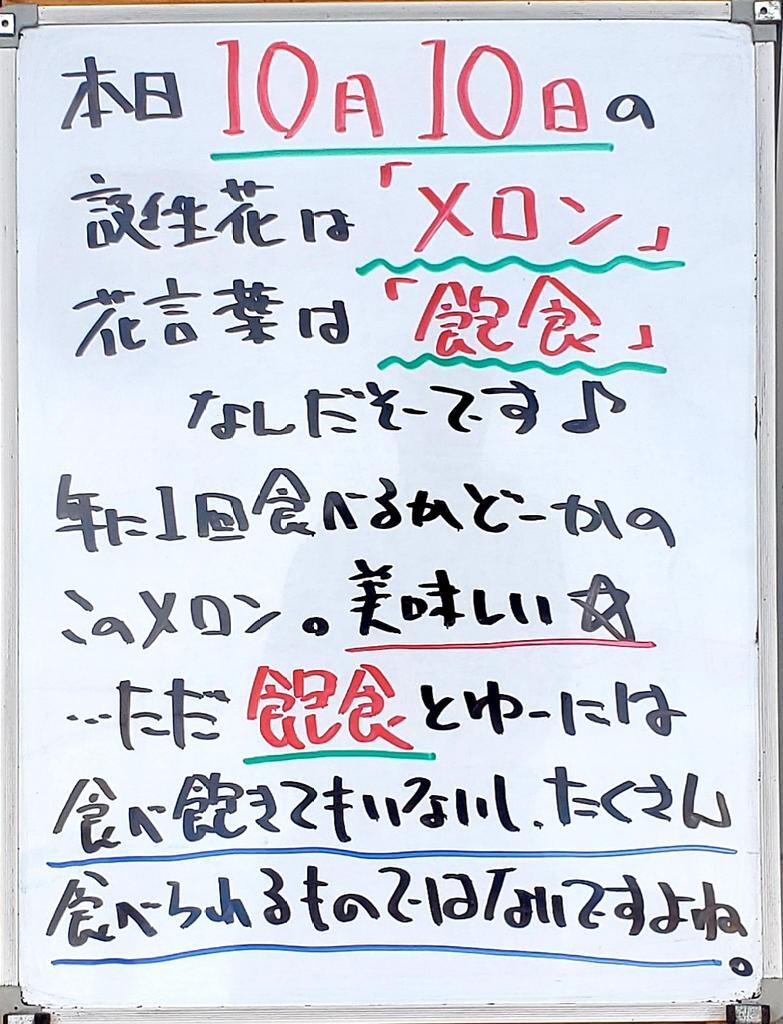 本日10月10日の
誕生花は「メロン」
花言葉は「飽食」
なしだそーです♪
年に1回食べるかどーかの
このメロン。美味しい☆
…ただ飽食とゆーには
食べ飽きてもいないし、たくさん
食べられるものではないですよね。